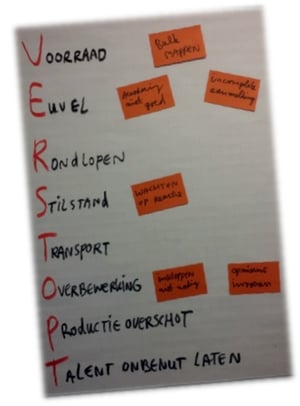 VOORRAAD
Bulk
MAPPEN
EUVEL
niet
goed
incomplete
aanmelding
RONDLOPEN
STILSTAND
WACHTEN
OP REACTIE
TRANSPORT
OVERBEWERKING
inkloppen
niet nodig
opnieuw
invoeren
PRODUCTIE OVERSCHOT
TALENT ONBENUT LATEN